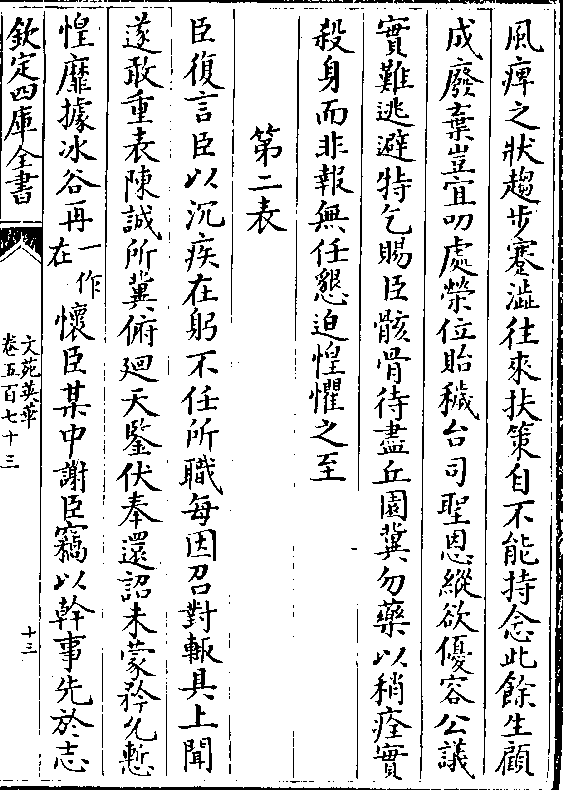 風痺之狀趨步蹇澁往來扶策自不能持念此餘生顧
成廢棄豈宜叨處榮位貽穢台司聖恩縱欲優容公議
實難逃避特乞賜臣骸骨待盡丘園冀勿藥以稍痊實
殺身而非報無任懇迫惶懼之至
第二表
臣復言臣以沉疾在躬不任所職每因召對輙具上聞
遂敢重表陳誠所冀俯迴天鑒伏奉還詔未蒙矜允慙
惶靡據冰谷再一作在懷臣某中謝臣竊以幹事先於志
欽定四庫全書
文苑英華
卷五百七十三
十三